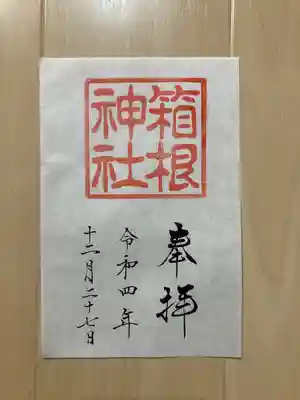 箱根
神社
奉拝
令和四年
十二月二十七日